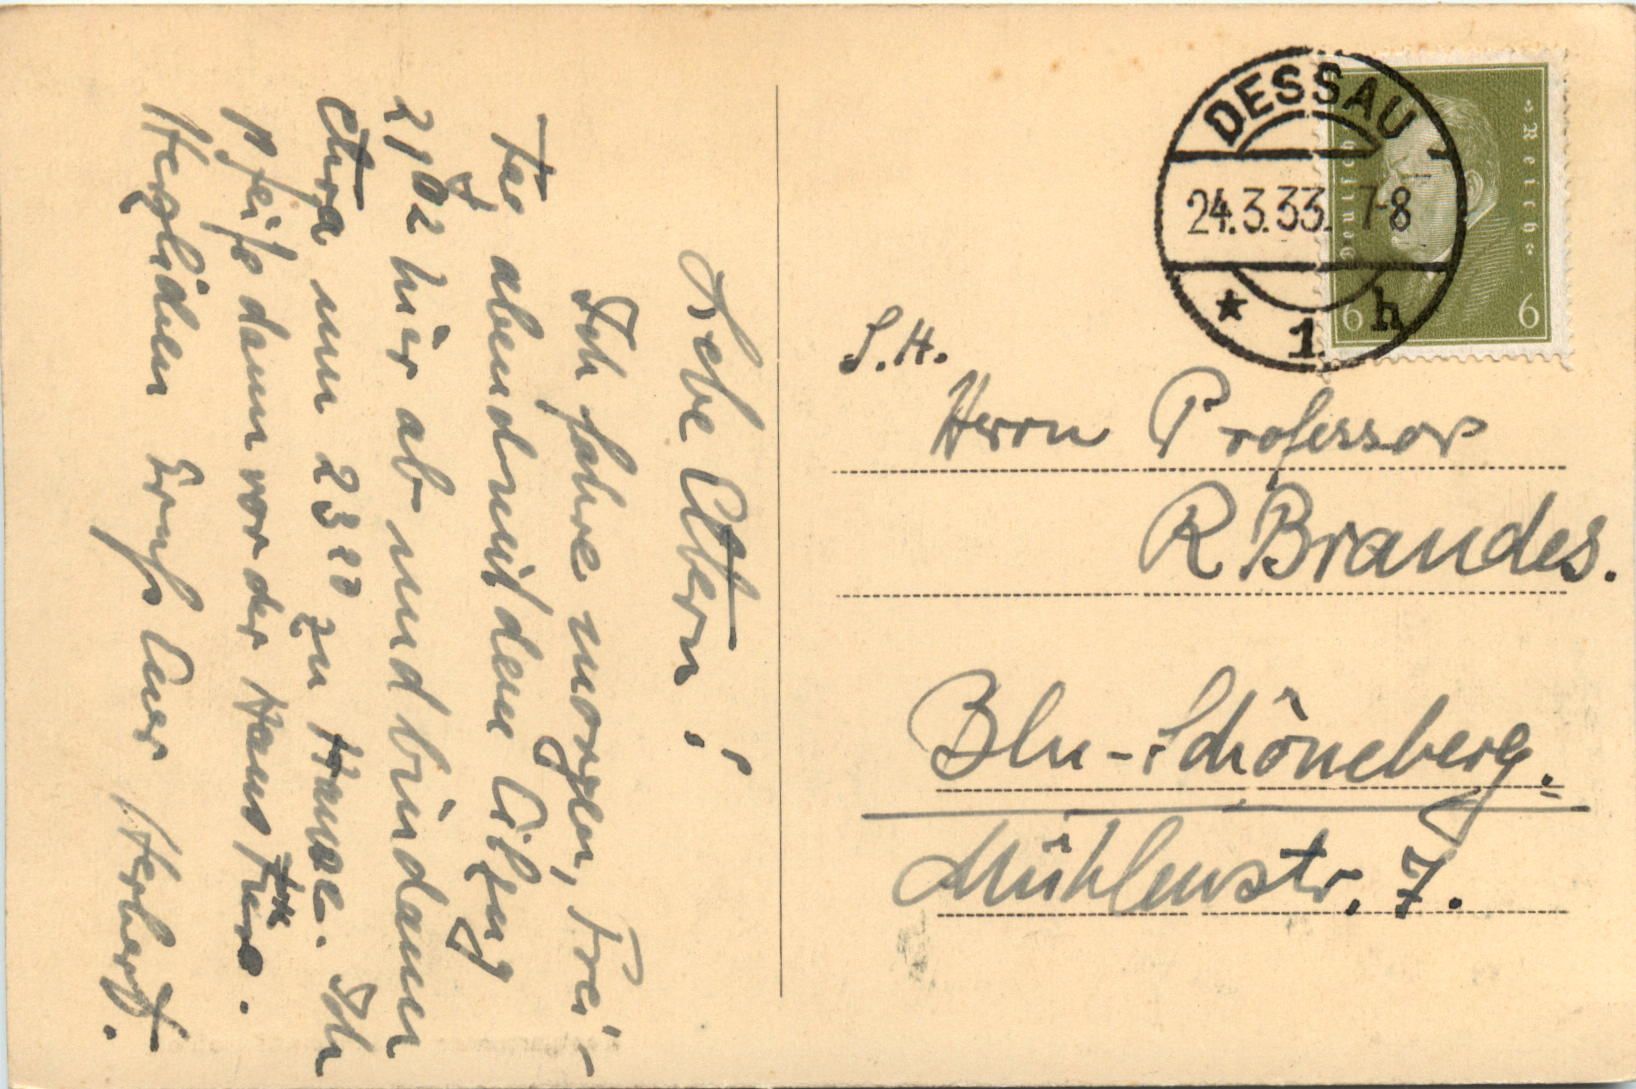 Liebe Eltern!
Ich fahre morgen, Frei-
tag abend mit dem Eilzug
2102 hier ab und bin dann
etwa um 2320 zu Hause. Ich
pfeife dann vor der Haustüre.
Herzlichen Gruß Euer Herbert.
DESSAU
24.3.33. 7-8
* 1 h
Deutsches Reich
6 6
S.H.
Herrn Professor
R. Brandes.
Bln-Schöneberg.
Mühlenstr. 7.